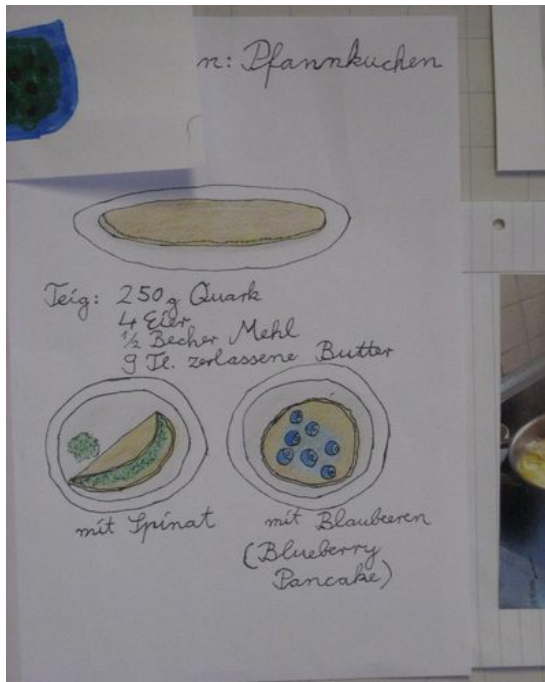 n: Pfannkuchen
Teig: 250g Quark
4 Eier
1/2 Becher Mehl
9 Tl. zerlassene Butter
mit Spinat
mit Blaubeeren
(Blueberry
Pancake)